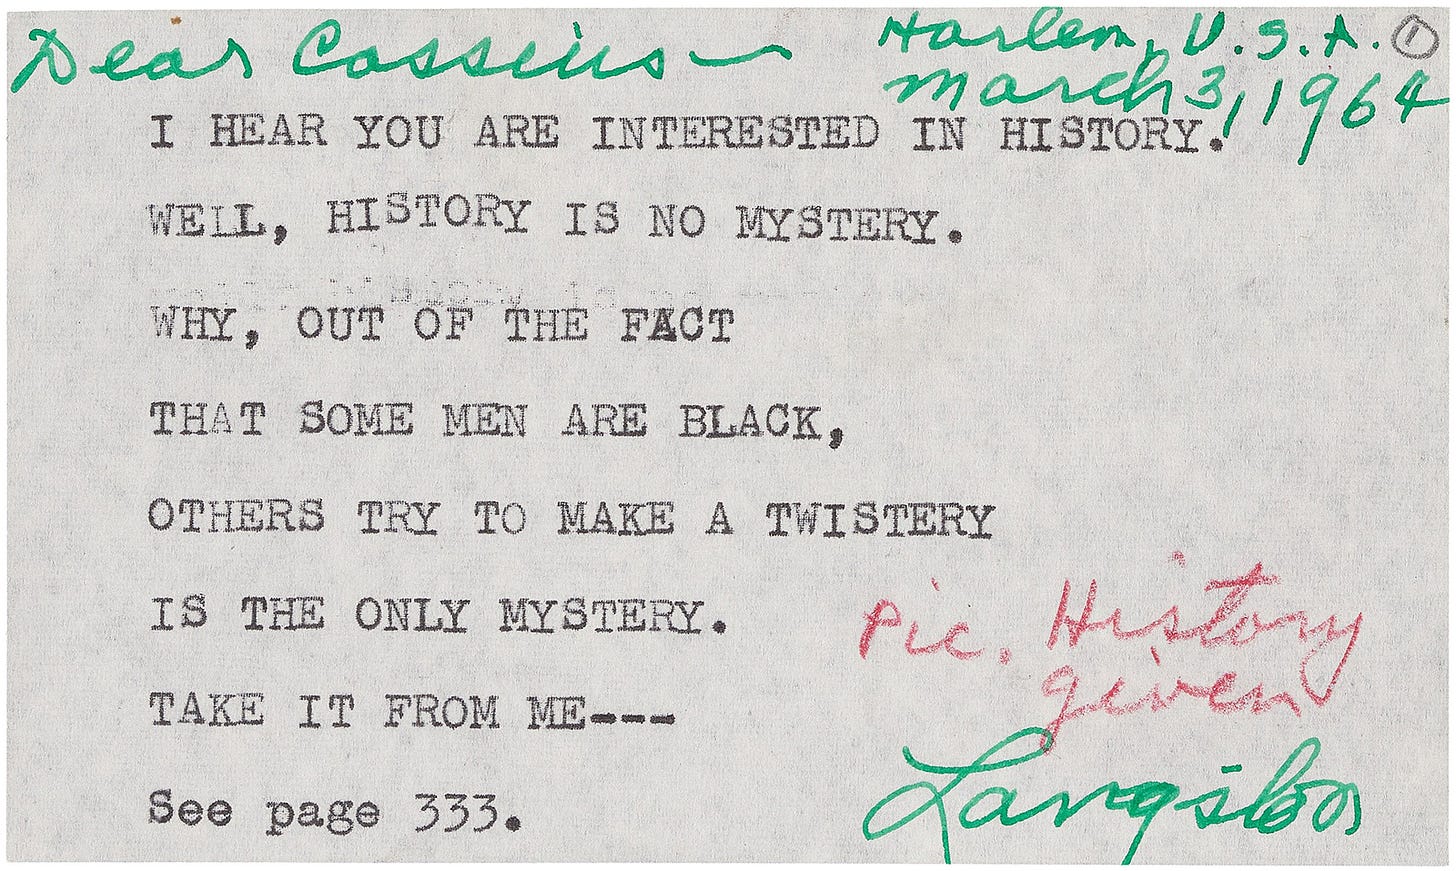 Dear Cassius —
Harlem, U.S.A. ①
March 3, 1964
I HEAR YOU ARE INTERESTED IN HISTORY.
WELL, HISTORY IS NO MYSTERY.
WHY, OUT OF THE FACT
THAT SOME MEN ARE BLACK,
OTHERS TRY TO MAKE A TWISTERY
IS THE ONLY MYSTERY.
Pic. History
given
TAKE IT FROM ME---
See page 333.
Langston